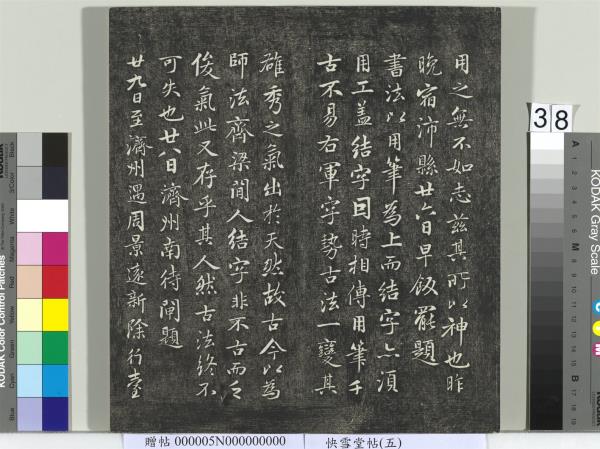 用之無不如志茲其所以神也昨
晚宿沛縣廿六日早飯罷題
書法以用筆為上而結字亦須
用工蓋結字因時相傳用筆千
古不易右軍字勢古法一變其
雄秀之氣出於天然故古今以為
師法齊梁間人結字非不古而乏
俊氣此又存乎其人然古法終不
可失也廿八日濟州南待閘題
廿九日至濟州遇周景遠新除行臺
38
KODAK Gray Scale
A 1 2 3 4 5 6 M 8 9 10 11 12 13 14 15 B 17 18 19
C
M
KODAK Color Control Patches
Blue Cyan Green Yellow Red Magenta White 3/Color Black
贈帖 000005N000000000 快雪堂帖(五)